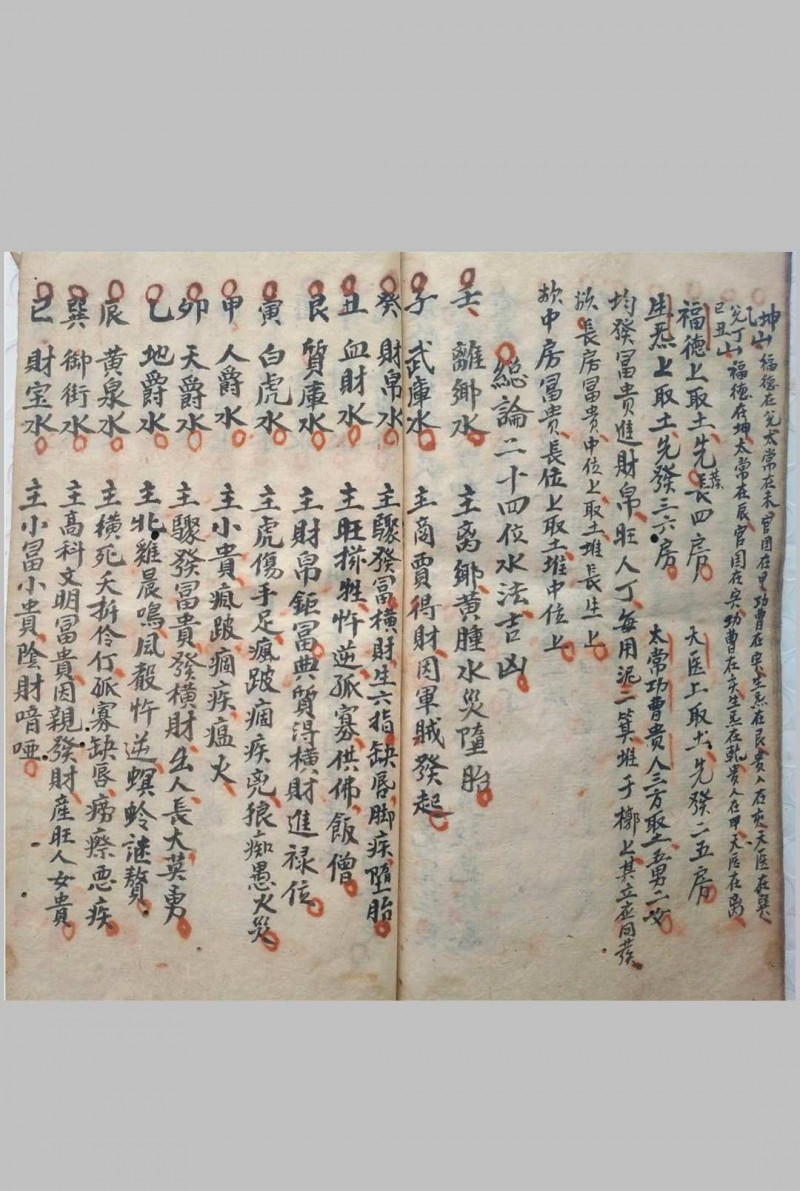 坤山 福德在兊太常在未官国在甲功曹在癸生炁在艮貴人在庚天医在巽
兊丁山 福德在坤太常在辰官国在癸功曹在亥生炁在乾貴人在甲天医在离
巳丑
福德上取土先發長四房 天医上取土先發二五房
生炁上取土先發三六房 太常功曹貴人三方取土五男二女
均發冨貴進財帛旺人丁每用泥二箕堆于槨上其立应同發
欲長房冨貴中位上取土堆長生上
欲中房冨貴長位上取土堆中位上
總論二十四位水法吉凶
壬 離鄉水 主离鄉黄腫水災墮胎
子 武庫水 主商賈得財因軍賊發起
癸 財帛水 主驟發冨橫財生六指缺唇脚疾墮胎
丑 血財水 主旺㨾牲忤逆孤寡供佛飯僧
艮 質庫水 主財帛鉅冨典質得橫財進禄位
寅 白虎水 主虎傷手足瘋跛痼疾虎狼痴愚火災
甲 人爵水 主小貴瘋跛痼疾瘟火
卯 天爵水 主驟發冨貴發橫財出人長大英勇
乙 地爵水 主牝雞晨鳴風聲忤逆螟蛉謎贅
辰 黄泉水 主橫死夭折伶仃孤寡缺唇癆瘵悪疾
巽 御街水 主高科文明冨貴因親發財産旺人女貴
巳 財宝水 主小冨小貴陰財喑啞